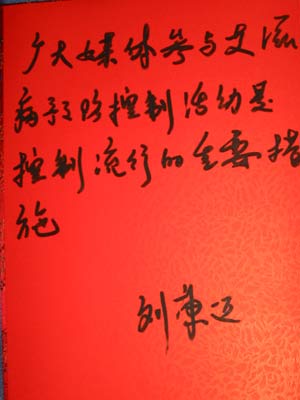 广大媒体参与艾滋
病预防控制活动是
控制流行的重要措
施
刘康迈